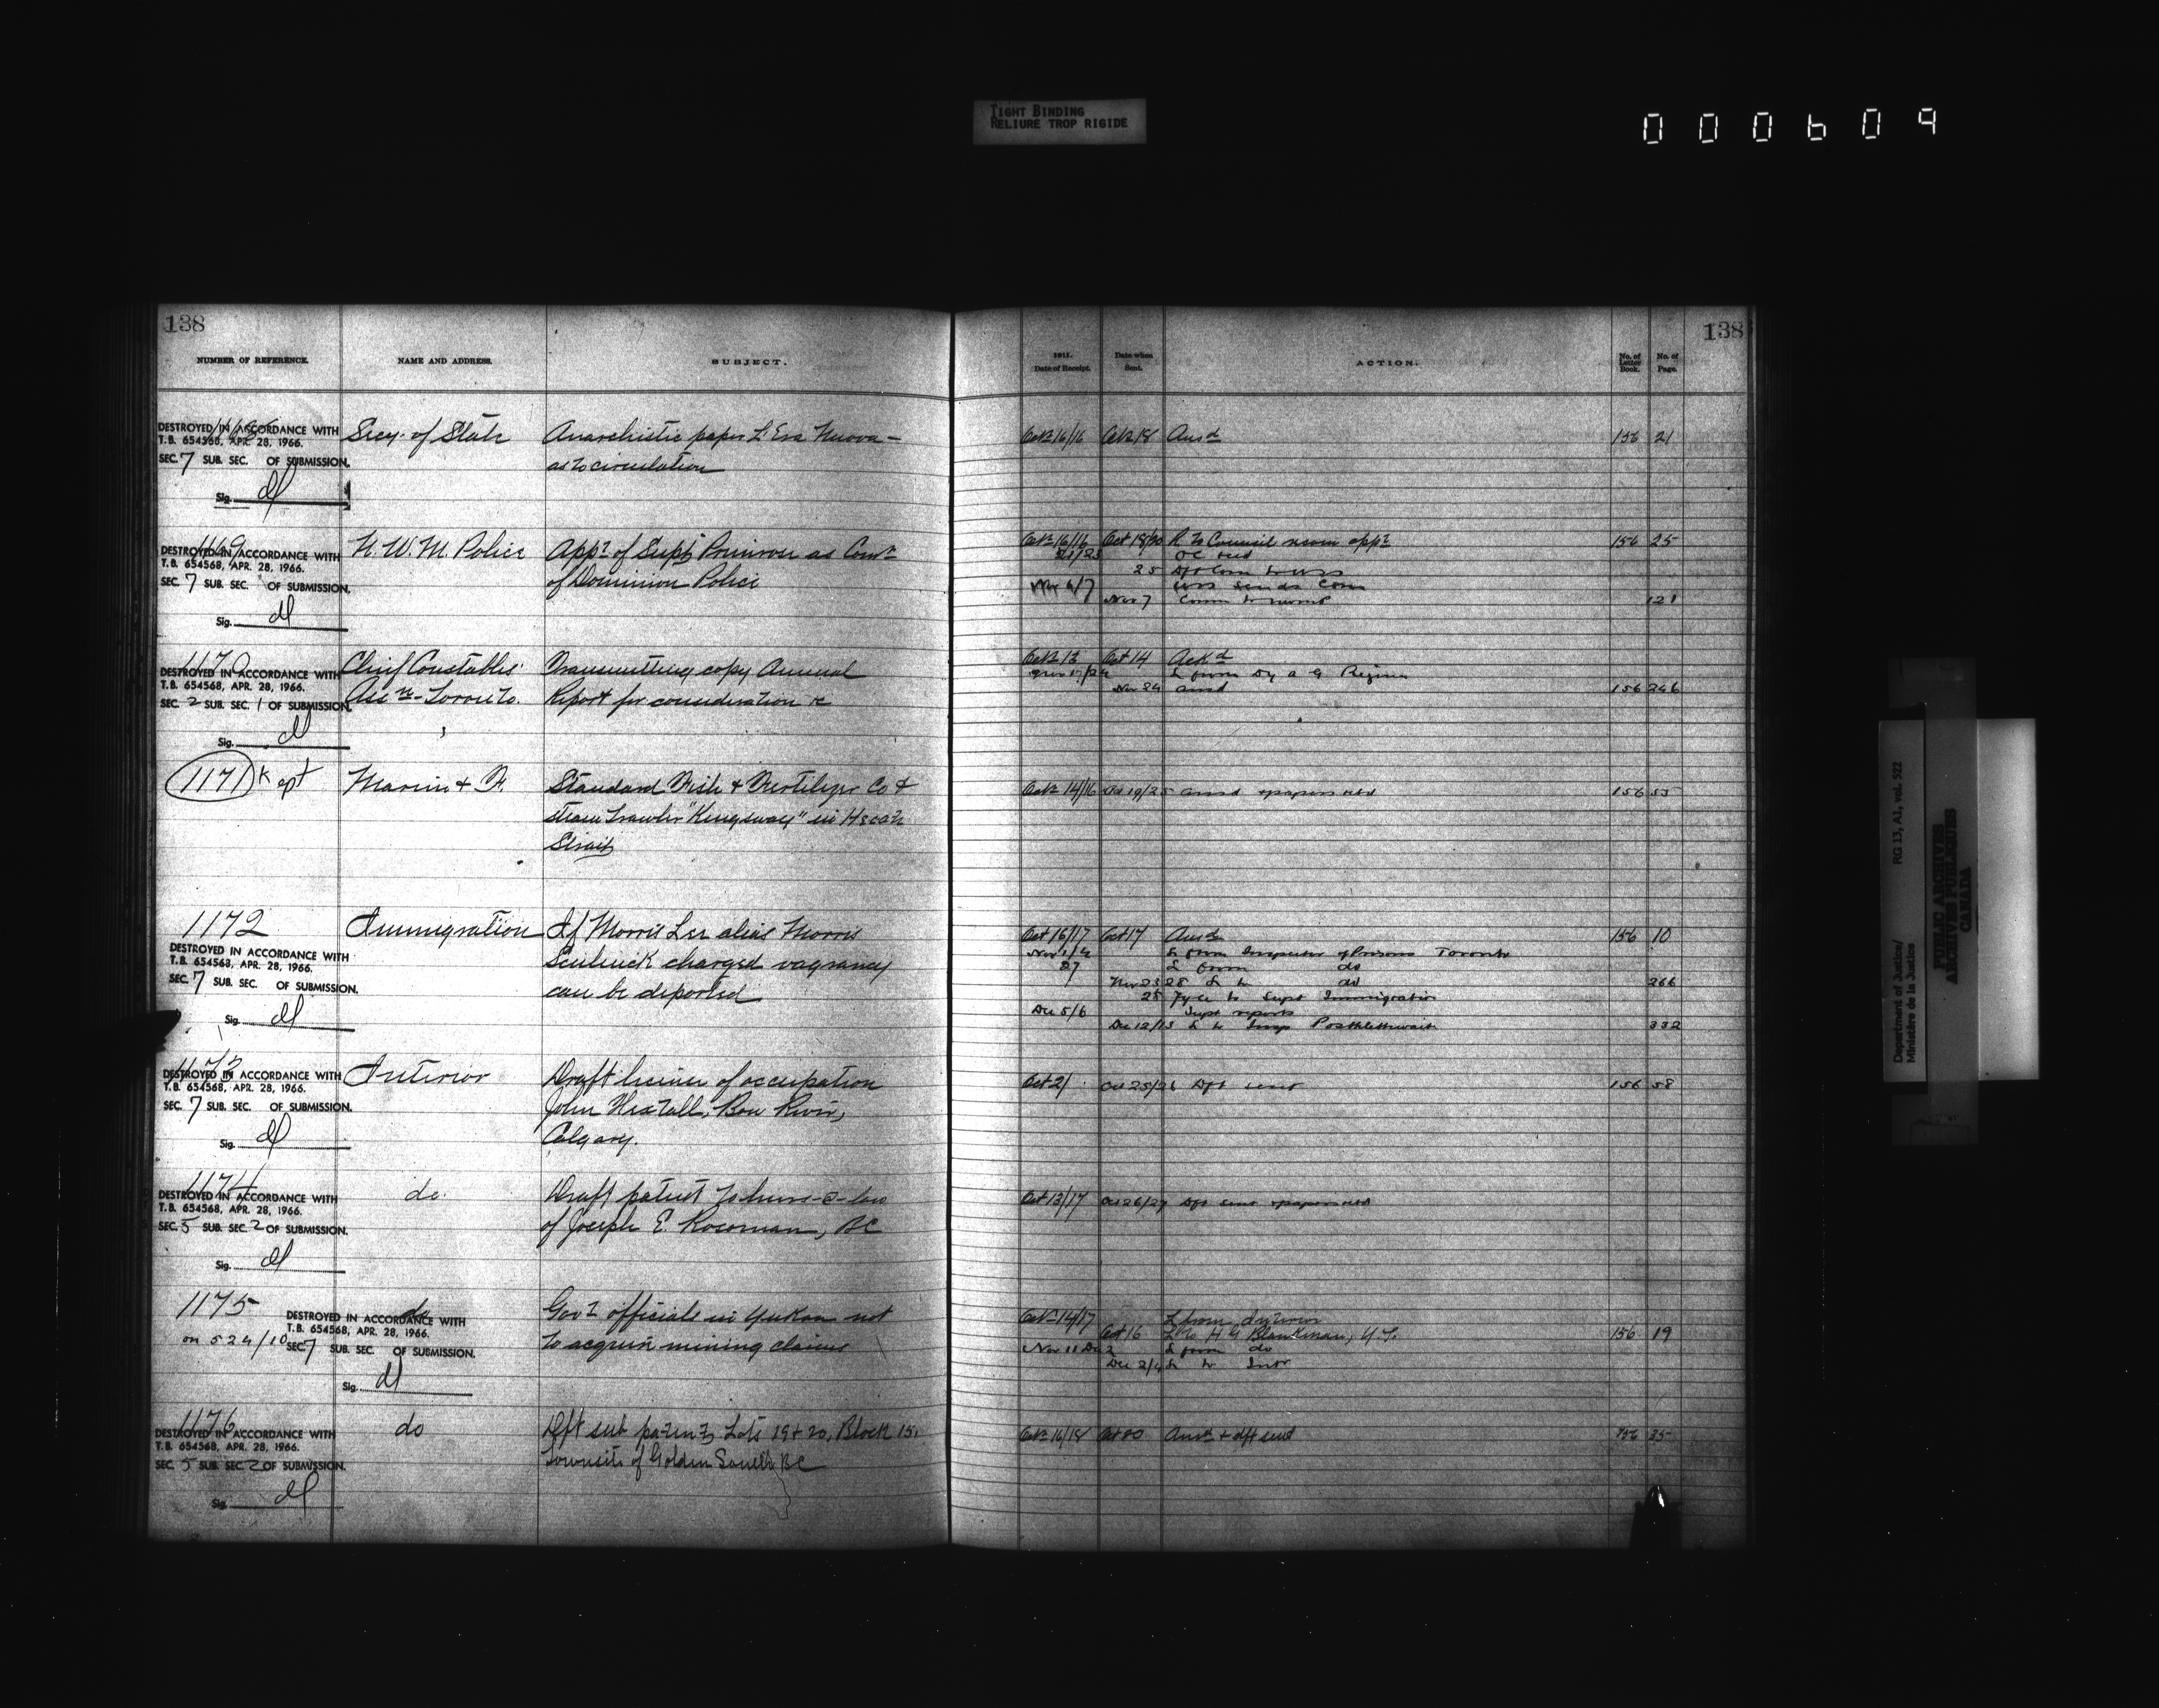 TIGHT BINDING
RELIURE TROP RIGIDE
000609
138
138
NUMBER OF REFERENCE. NAME AND ADDRESS. SUBJECT. 1911. Date of Receipt. Date when Sent. ACTION. No. of Letter Book. No. of Page.
1168 Secy. of State Anarchistic paper L'Era Nuova – Oct 16/16 Oct 18 Ansd 156 21
DESTROYED IN ACCORDANCE WITH
T.B. 654568, APR. 28, 1966.
as to circulation
SEC. 7 SUB. SEC. OF SUBMISSION.
Sig.
1169 N. W. M. Police Appt of Supt Primrose as Comr Oct 16/16 Oct 18/20 R to Council recom appt 156 25
DESTROYED IN ACCORDANCE WITH
T.B. 654568, APR. 28, 1966.
of Dominion Police
25 Dft Com to
SEC. 7 SUB. SEC. OF SUBMISSION.
Nov 6/7 sends Com
Nov 7 Comm to 121
Sig.
1170 Chief Constables' Transmitting copy Annual Oct 13 Oct 14 Ackd
DESTROYED IN ACCORDANCE WITH
T.B. 654568, APR. 28, 1966.
L from Dy A G Regina
Assn - Toronto. Report for consideration &c Nov 24 ansd 156 246
SEC. 2 SUB. SEC. 1 OF SUBMISSION.
Sig.
1171 Kept Marine & F. Standard Fish & Fertilizer Co & Oct 14/16 Oct 19/25 ansd & papers retd 156 55
steam trawler "Kingsway" in Hecate
Strait
1172 Immigration If Morris Lee alias Morris Oct 16/17 Oct 17 Ansd 156 10
DESTROYED IN ACCORDANCE WITH
T.B. 654568, APR. 28, 1966.
charged vagrancy L from Inspector of Prisons Toronto
27 L from do
SEC. 7 SUB. SEC. OF SUBMISSION.
can be deported Nov 23/28 L to do 266
28 to Supt Immigration
Dec 5/6 Supt reports
Sig.
Dec 12/13 L to Insp Postlethwaite 332
1173 Interior Draft license of occupation Oct 21 Oct 25/26 Dft sent 156 58
DESTROYED IN ACCORDANCE WITH
T.B. 654568, APR. 28, 1966.
John Hextall, Bow River,
SEC. 7 SUB. SEC. OF SUBMISSION.
Calgary.
Sig.
1174 do. Draft patent to heirs-@-law Oct 13/17 Oct 26/27 Dft sent & papers retd
DESTROYED IN ACCORDANCE WITH
T.B. 654568, APR. 28, 1966.
of Joseph E. Rosoman, BC
SEC. 5 SUB. SEC. 2 OF SUBMISSION.
Sig.
1175 do Govt officials in Yukon not Oct 14/17 L from Interior
DESTROYED IN ACCORDANCE WITH
T.B. 654568, APR. 28, 1966.
on 524/10 to acquire mining claims Oct 16 L to H G Blankman, Y.T. 156 19
SEC. 7 SUB. SEC. OF SUBMISSION.
Nov 11 Dec 2 L from do
Dec 2/4 L to Intr
Sig.
1176 do Dft sub patent to Lots 19 & 20, Block 15, Oct 16/18 Oct 20 Ansd & dft sent 156 35
DESTROYED IN ACCORDANCE WITH
T.B. 654568, APR. 28, 1966.
townsite of Golden South, BC
SEC. 5 SUB. SEC. 2 OF SUBMISSION.
Sig.
Department of Justice/
Ministère de la Justice
RG 13, A1, vol. 522
PUBLIC ARCHIVES
ARCHIVES PUBLIQUES
CANADA